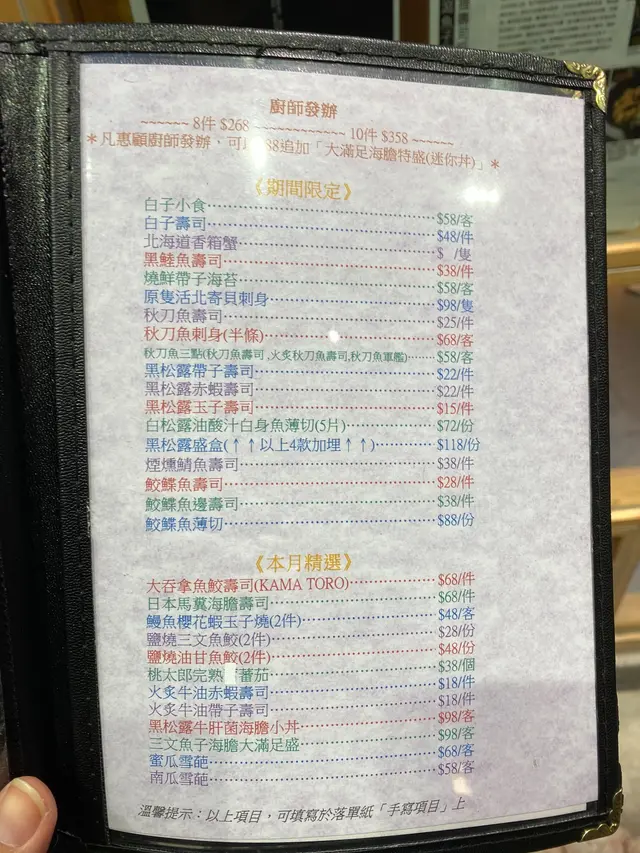 廚師發辦
~~~~~~ 8件 $268 ~~~~~~~~~~~~~ 10件 $358 ~~~~~~
＊凡惠顧廚師發辦，可 88追加「大滿足海膽特盛(迷你丼)」＊
《期間限定》
白子小食 $58/客
白子壽司 $48/件
北海道香箱蟹 $ /隻
黑鯥魚壽司 $38/件
燒鮮帶子海苔 $58/客
原隻活北寄貝刺身 $98/隻
秋刀魚壽司 $25/件
秋刀魚刺身(半條) $68/客
秋刀魚三點(秋刀魚壽司,火炙秋刀魚壽司,秋刀魚軍艦) $58/客
黑松露帶子壽司 $22/件
黑松露赤蝦壽司 $22/件
黑松露玉子壽司 $15/件
白松露油酸汁白身魚薄切(5片) $72/份
黑松露盛盒(↑↑以上4款加埋↑↑) $118/份
煙燻鯖魚壽司 $38/件
鮫鰈魚壽司 $28/件
鮫鰈魚邊壽司 $38/件
鮫鰈魚薄切 $88/份
《本月精選》
大吞拿魚鮫壽司(KAMA TORO) $68/件
日本馬糞海膽壽司 $68/件
鰻魚櫻花蝦玉子燒(2件) $48/客
鹽燒三文魚鮫(2件) $28/份
鹽燒油甘魚鮫(2件) $48/份
桃太郎完熟 蕃茄 $38/個
火炙牛油赤蝦壽司 $18/件
火炙牛油帶子壽司 $18/件
黑松露牛肝菌海膽小丼 $98/客
三文魚子海膽大滿足盛 $98/客
蜜瓜雪葩 $68/客
南瓜雪葩 $58/客
溫馨提示：以上項目，可填寫於落單紙「手寫項目」上